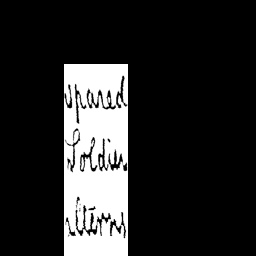 spared
Soldier
alterns